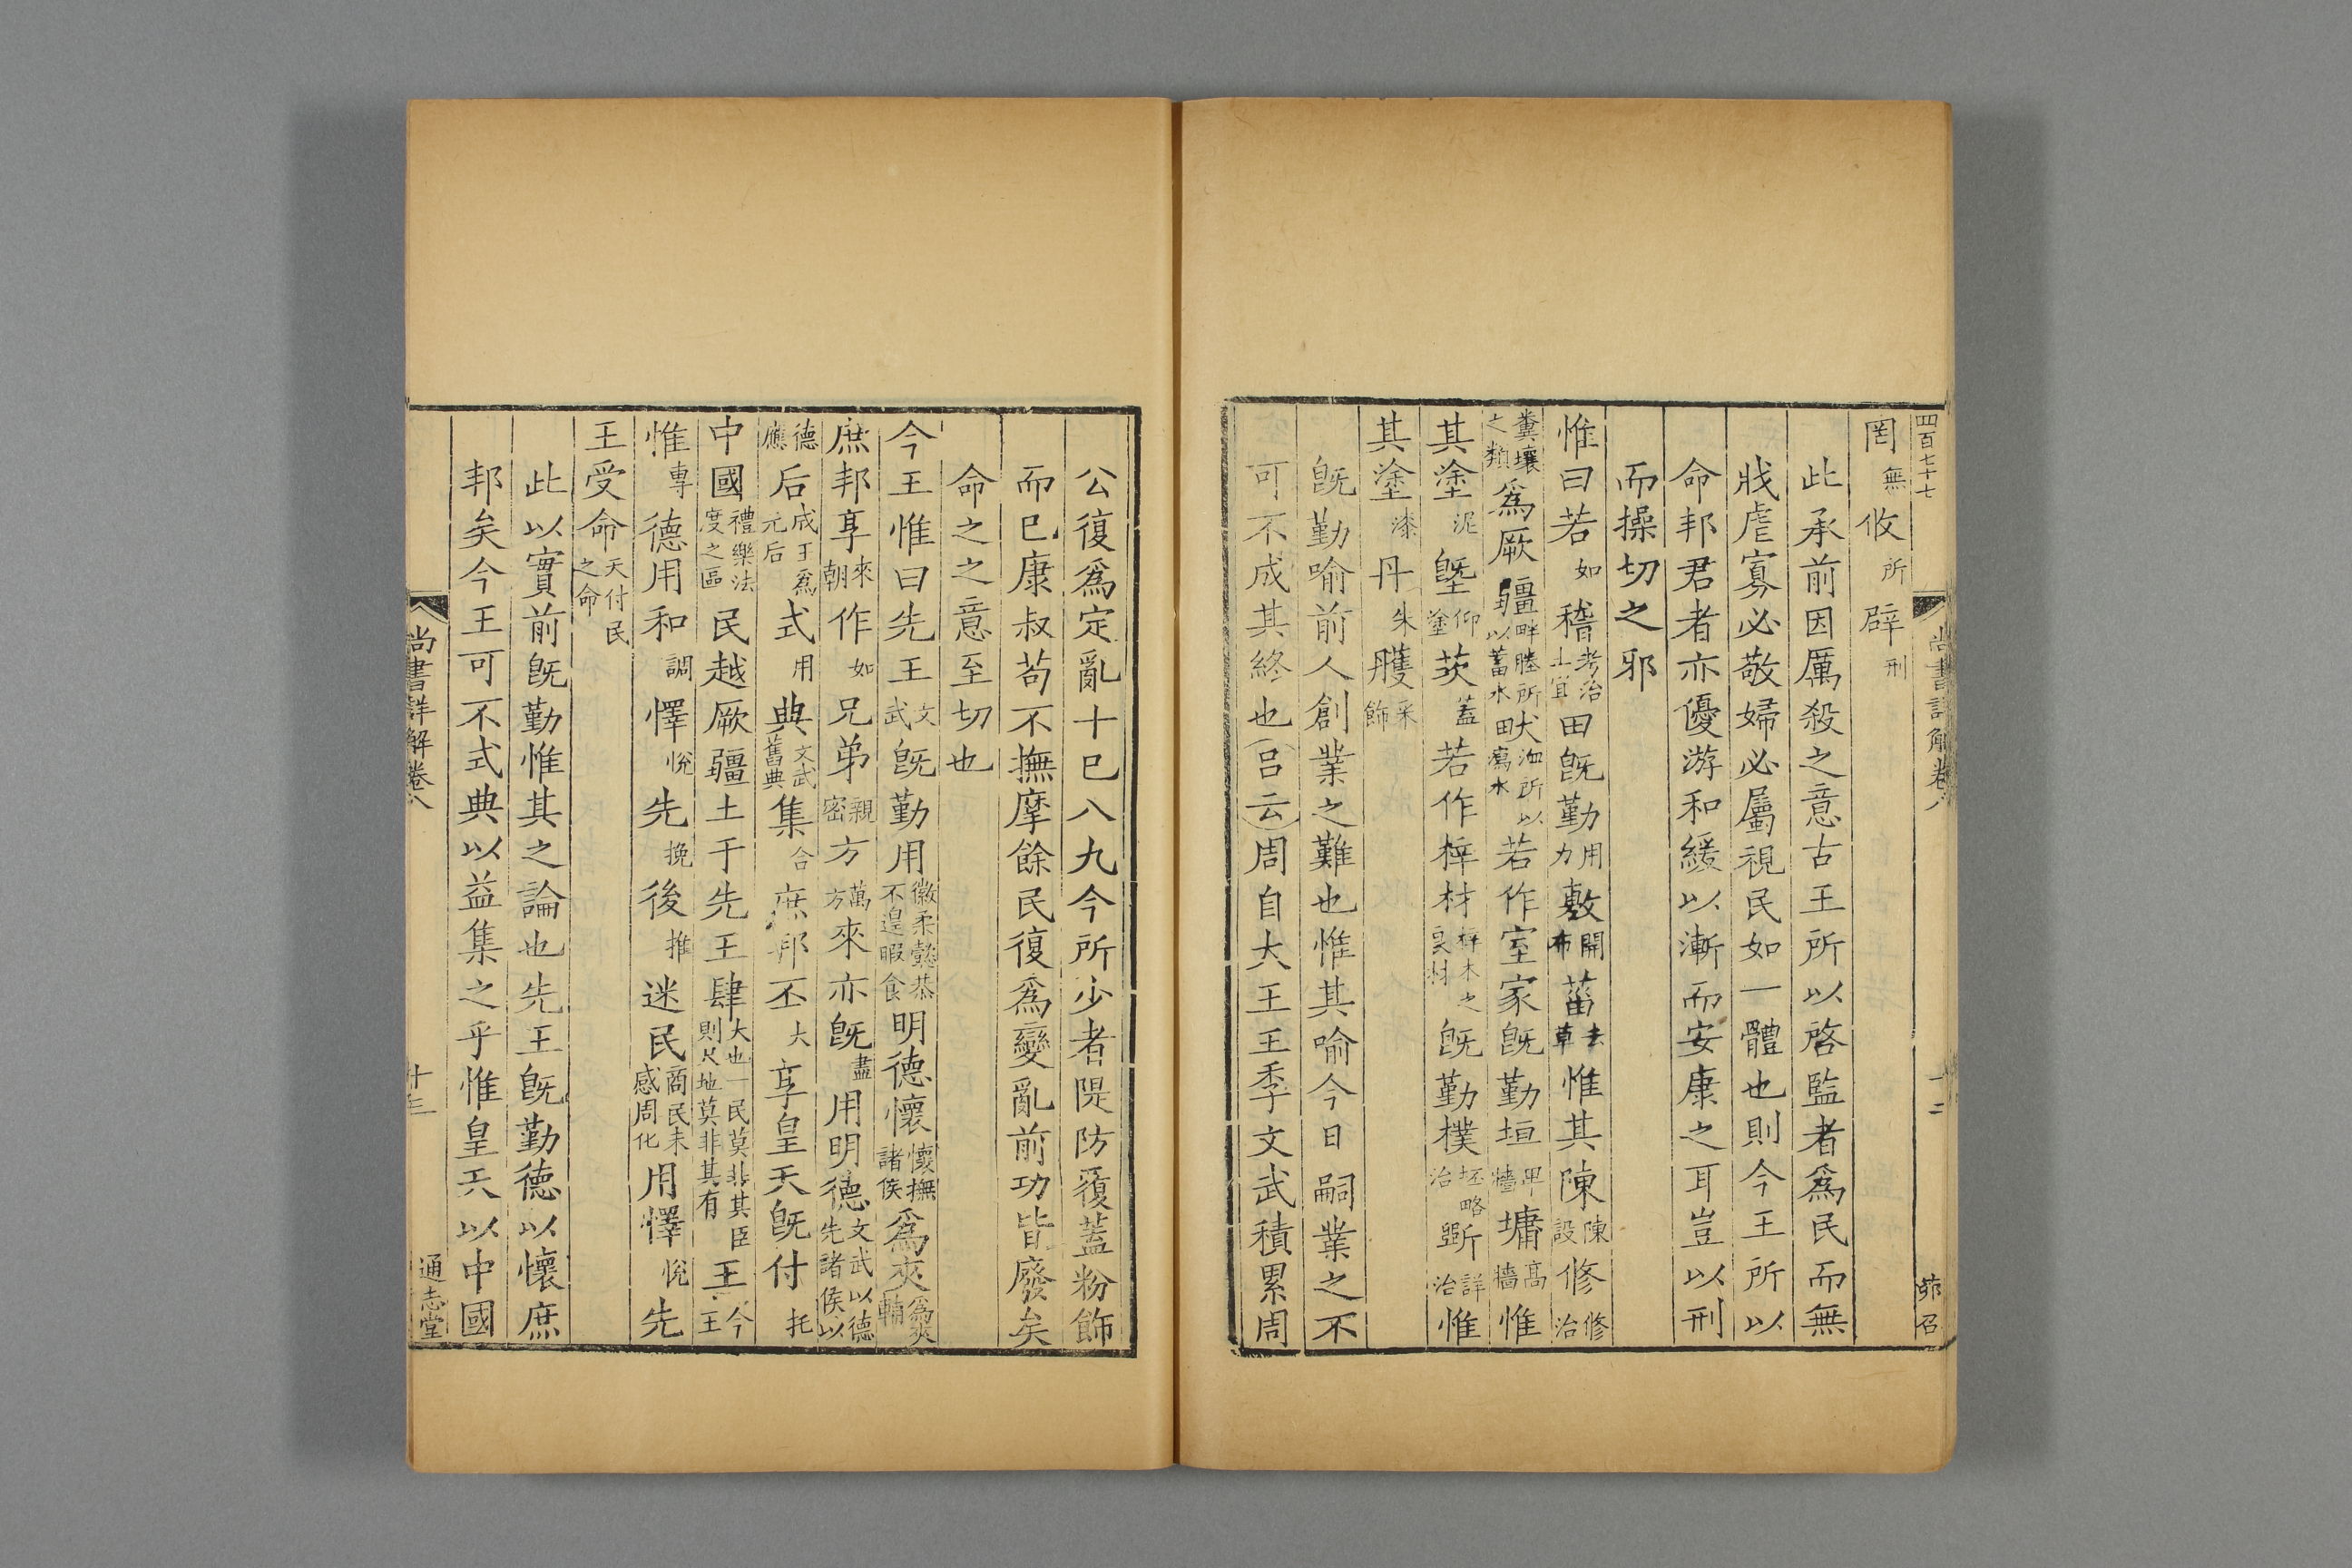 四百七十七
尚書詳解卷八
十二
茆召
罔無攸所辟刑
此承前因厲殺之意古王所以啓監者爲民而無
戕虐寡必敬婦必屬視民如一體也則今王所以
命邦君者亦優游和緩以漸而安康之耳豈以刑
而操切之邪
惟曰若如稽考治土宜田旣勤用力敷開布菑去草惟其陳陳設修修治
糞壤之類爲厥疆畔塍所以蓄水畎洫所以瀉水若作室家旣勤垣卑牆墉高牆惟
其塗泥塈仰塗茨蓋若作梓材梓木之良材旣勤樸坯略治斲詳治惟
其塗漆丹朱雘采飾
旣勤喻前人創業之難也惟其喻今日嗣業之不
可不成其終也呂云周自大王王季文武積累周
公復爲定亂十巳八九今所少者隄防覆蓋粉飾
而巳康叔苟不撫摩餘民復爲變亂前功皆廢矣
命之之意至切也
今王惟曰先王文武旣勤用徽柔懿恭不遑暇食明德懷懷撫諸侯爲夾爲夾輔
庶邦享來朝作如兄弟親密方萬方來亦旣盡用明德文武以德先諸侯以
德應后成王爲元后式用典文武舊典集合庶邦丕大享皇天旣付托
中國禮樂法度之區民越厥疆土于先王肆大也一民莫非其臣則尺地莫非其有王今王
惟專德用和調懌悅先挽後推迷民商民未感周化用懌悅先
王受命天付民之命
此以實前旣勤惟其之論也先王旣勤德以懷庶
邦矣今王可不式典以益集之乎惟皇天以中國
尚書詳解卷八
十三
通志堂